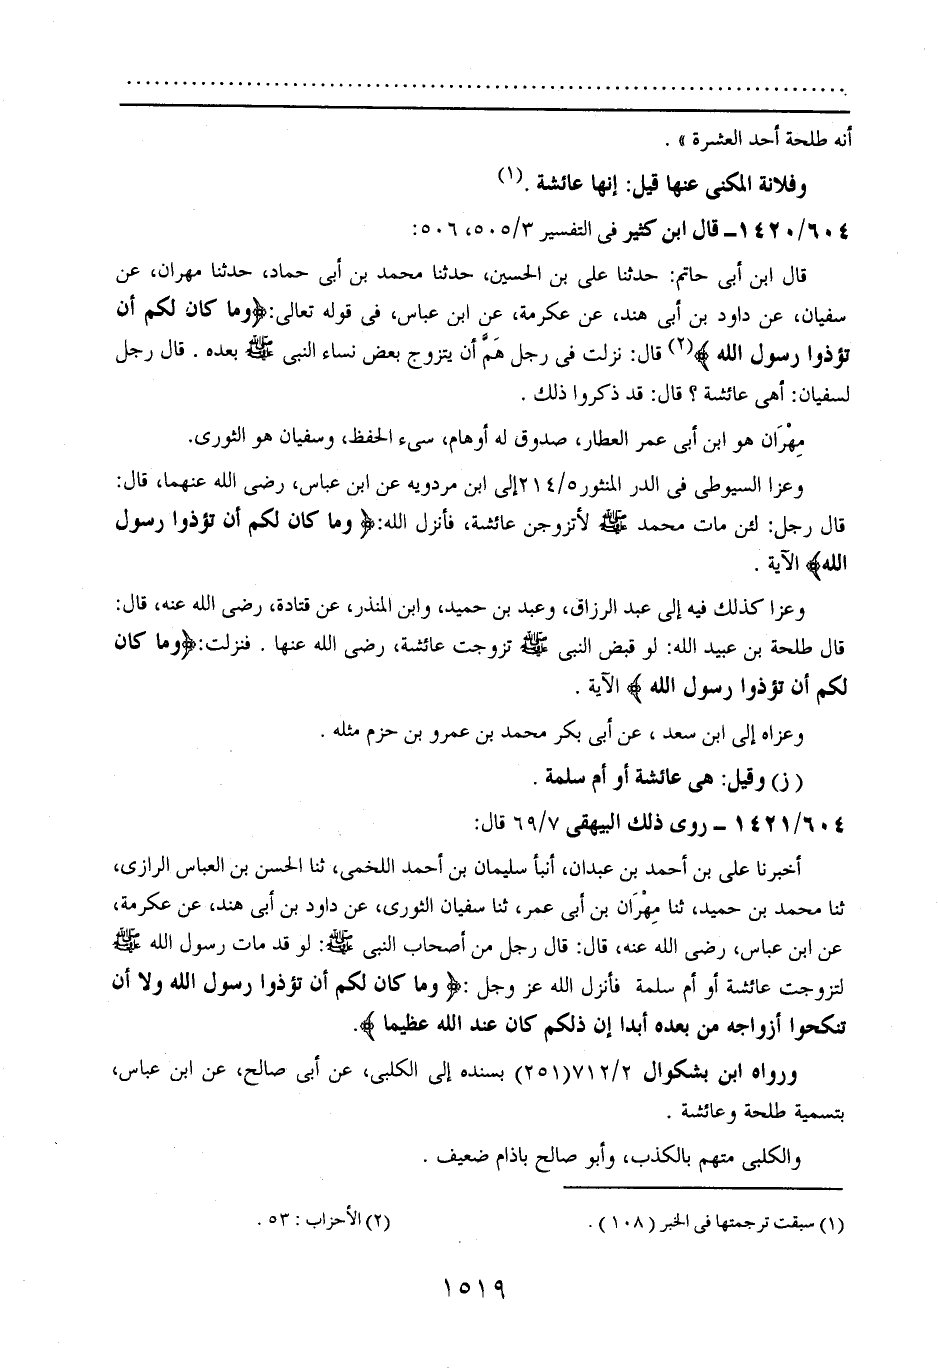 أنه طلحة أحد العشرة » .
وفلانة المكنى عنها قيل: إنها عائشة .(١)
١٤٢٠/٦٠٤ــ قال ابن كثير فى التفسير ٥٠٥/٣، ٥٠٦:
قال ابن أبى حاتم: حدثنا على بن الحسين، حدثنا محمد بن أبى حماد، حدثنا مهران، عن
سفيان، عن داود بن أبى هند، عن عكرمة، عن ابن عباس، فى قوله تعالى:﴿وما كان لكم أن
تؤذوا رسول الله ﴾(٢) قال: نزلت فى رجل هَمَّ أن يتزوج بعض نساء النبى ﷺ بعده . قال رجل
لسفيان: أهى عائشة ؟ قال: قد ذكروا ذلك .
مِهْرَان هو ابن أبى عمر العطار، صدوق له أوهام، سىء الحفظ، وسفيان هو الثورى.
وعزا السيوطى فى الدر المنثور٢١٤/٥إلى ابن مردويه عن ابن عباس، رضى الله عنهما، قال:
قال رجل: لئن مات محمد ﷺ لأتزوجن عائشة، فأنزل الله:﴿ وما كان لكم أن تؤذوا رسول
الله﴾ الآية .
وعزا كذلك فيه إلى عبد الرزاق، وعبد بن حميد، وابن المنذر، عن قتادة، رضى الله عنه، قال:
قال طلحة بن عبيد الله: لو قبض النبى ﷺ تزوجت عائشة، رضى الله عنها . فنزلت:﴿وما كان
لكم أن تؤذوا رسول الله ﴾ الآية .
وعزاه إلى ابن سعد ، عن أبى بكر محمد بن عمرو بن حزم مثله .
( ز) وقيل: هى عائشة أو أم سلمة .
١٤٢١/٦٠٤ ــ روى ذلك البيهقى ٦٩/٧ قال:
أخبرنا على بن أحمد بن عبدان، أنبأ سليمان بن أحمد اللخمى، ثنا الحسن بن العباس الرازى،
ثنا محمد بن حميد، ثنا مِهْرَان بن أبى عمر، ثنا سفيان الثورى، عن داود بن أبى هند، عن عكرمة،
عن ابن عباس، رضى الله عنه، قال: قال رجل من أصحاب النبى ﷺ: لو قد مات رسول الله ﷺ
لتزوجت عائشة أو أم سلمة فأنزل الله عز وجل :﴿ وما كان لكم أن تؤذوا رسول الله ولا أن
تنكحوا أزواجه من بعده أبدا إن ذلكم كان عند الله عظيما ﴾.
ورواه ابن بشكوال ٧١٢/٢(٢٥١) بسنده إلى الكلبى، عن أبى صالح، عن ابن عباس،
بتسمية طلحة وعائشة .
والكلبى متهم بالكذب، وأبو صالح باذام ضعيف .
(١) سبقت ترجمتها فى الخبر (١٠٨) . (٢) الأحزاب : ٥٣ .
١٥١٩